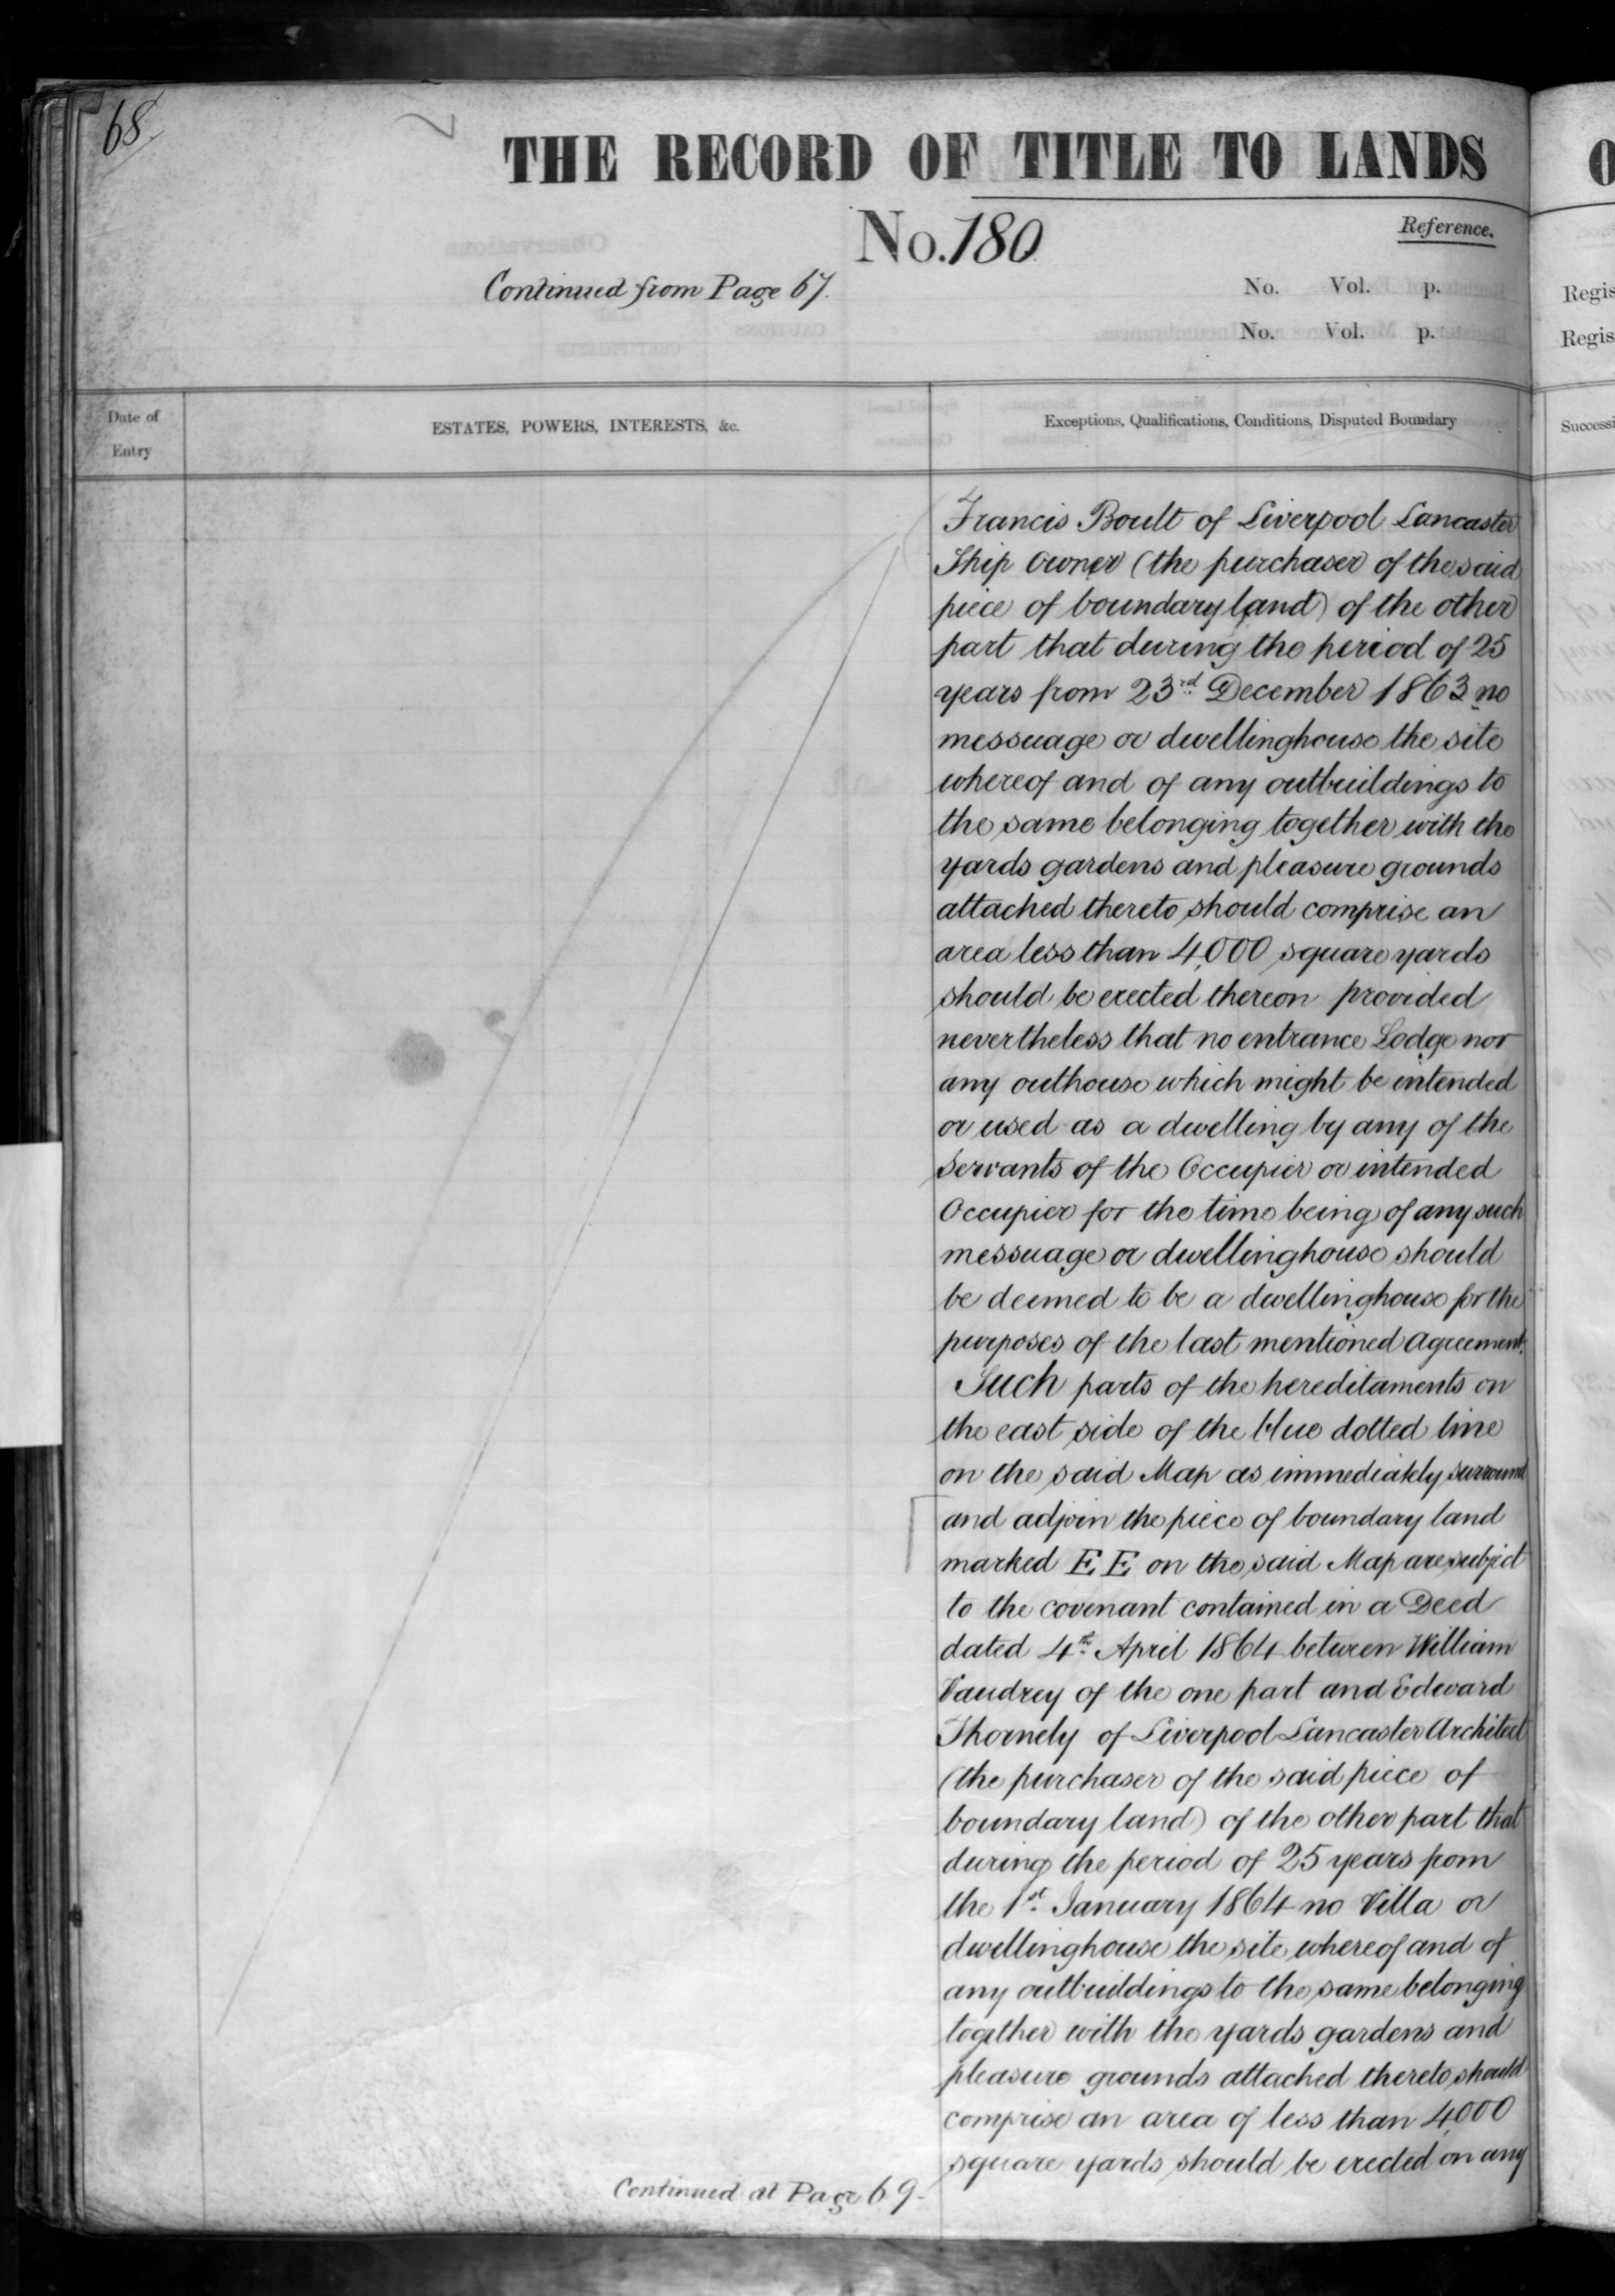 68
THE RECORD OF TITLE TO LANDS
No. 180
Reference.
Continued from Page 67.
No. Vol. p.
No. Vol. p.
Date of
Entry
ESTATES, POWERS, INTERESTS, &c.
Exceptions, Qualifications, Conditions, Disputed Boundary
Francis Boult of Liverpool Lancaster
Ship Owner (the purchaser of the said
piece of boundary land) of the other
part that during the period of 25
years from 23rd December 1863 no
messuage or dwellinghouse the site
whereof and of any outbuildings to
the same belonging together with the
yards gardens and pleasure grounds
attached thereto should comprise an
area less than 4,000 square yards
should be erected thereon provided
nevertheless that no entrance Lodge nor
any outhouse which might be intended
or used as a dwelling by any of the
Servants of the Occupier or intended
Occupier for the time being of any such
messuage or dwellinghouse should
be deemed to be a dwellinghouse for the
purposes of the last mentioned Agreement.
Such parts of the hereditaments on
the east side of the blue dotted line
on the said Map as immediately surround
and adjoin the piece of boundary land
marked E E on the said Map are subject
to the covenant contained in a Deed
dated 4th April 1864 between William
Vaudrey of the one part and Edward
Thornely of Liverpool Lancaster Architect
(the purchaser of the said piece of
boundary land) of the other part that
during the period of 25 years from
the 1st January 1864 no Villa or
dwellinghouse the site whereof and of
any outbuildings to the same belonging
together with the yards gardens and
pleasure grounds attached thereto should
comprise an area of less than 4,000
square yards should be erected on any
Continued at Page 69.
O
Regis
Regis
Successi